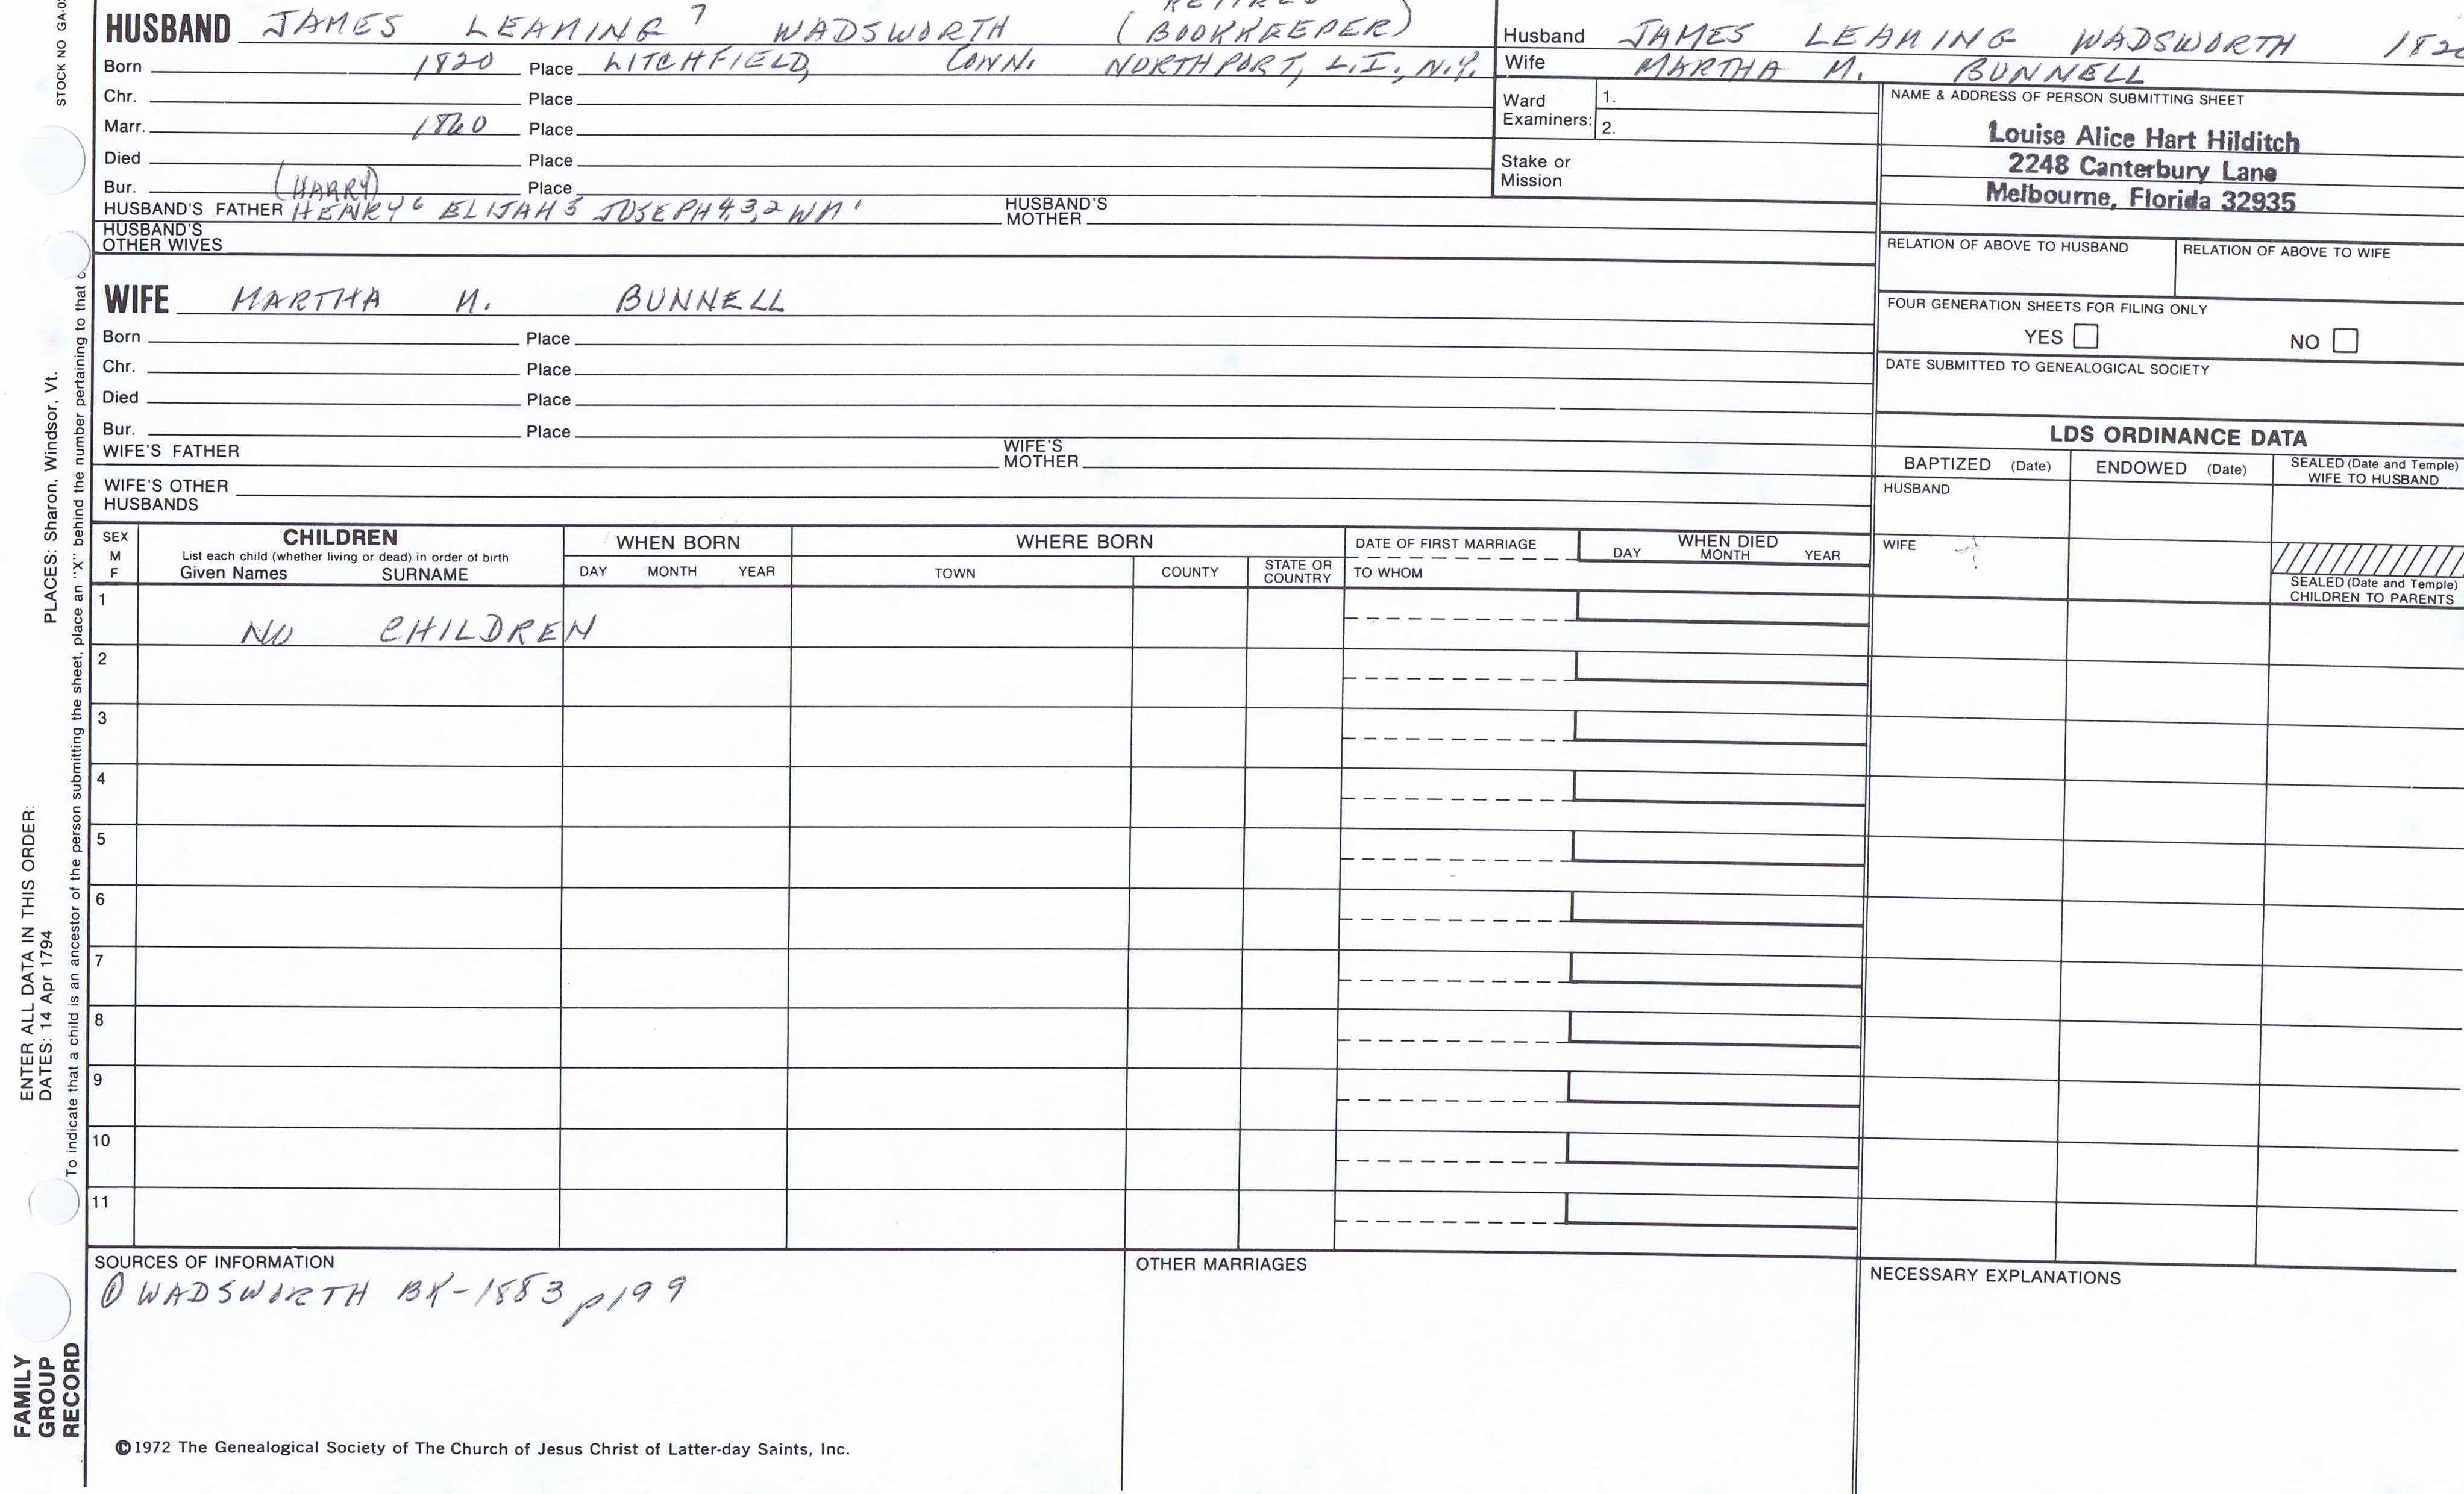 RETIRED
HUSBAND JAMES LEAMING 7 WADSWORTH (BOOKKEEPER)
Born 1820 Place LITCHFIELD, CONN. NORTHPORT, L.I., N.Y.
Chr. Place
Marr. 1860 Place
Died Place
Bur. (HARRY) Place
HUSBAND'S FATHER HENRY 6 ELIJAH 5 JOSEPH 4,3,2 WM 1 HUSBAND'S MOTHER
HUSBAND'S
OTHER WIVES
Husband JAMES LEAMING WADSWORTH 1820
Wife MARTHA M. BUNNELL
Ward
Examiners:
1.
2.
Stake or
Mission
NAME & ADDRESS OF PERSON SUBMITTING SHEET
Louise Alice Hart Hilditch
2248 Canterbury Lane
Melbourne, Florida 32935
RELATION OF ABOVE TO HUSBAND RELATION OF ABOVE TO WIFE
FOUR GENERATION SHEETS FOR FILING ONLY
YES NO
DATE SUBMITTED TO GENEALOGICAL SOCIETY
WIFE MARTHA M. BUNNELL
Born Place
Chr. Place
Died Place
Bur. Place
WIFE'S FATHER WIFE'S MOTHER
WIFE'S OTHER
HUSBANDS
LDS ORDINANCE DATA
BAPTIZED (Date) ENDOWED (Date) SEALED (Date and Temple)
WIFE TO HUSBAND
HUSBAND
WIFE
SEALED (Date and Temple)
CHILDREN TO PARENTS
SEX
M
F
CHILDREN
List each child (whether living or dead) in order of birth
Given Names SURNAME
WHEN BORN
DAY MONTH YEAR
WHERE BORN
TOWN COUNTY STATE OR COUNTRY
DATE OF FIRST MARRIAGE
TO WHOM
WHEN DIED
DAY MONTH YEAR
1 NO CHILDREN
2
3
4
5
6
7
8
9
10
11
SOURCES OF INFORMATION
① WADSWORTH BK-1883 p199
OTHER MARRIAGES
NECESSARY EXPLANATIONS
©1972 The Genealogical Society of The Church of Jesus Christ of Latter-day Saints, Inc.
STOCK NO GA-0
PLACES: Sharon, Windsor, Vt.
ENTER ALL DATA IN THIS ORDER:
DATES: 14 Apr 1794
To indicate that a child is an ancestor of the person submitting the sheet, place an "X" behind the number pertaining to that c
FAMILY
GROUP
RECORD